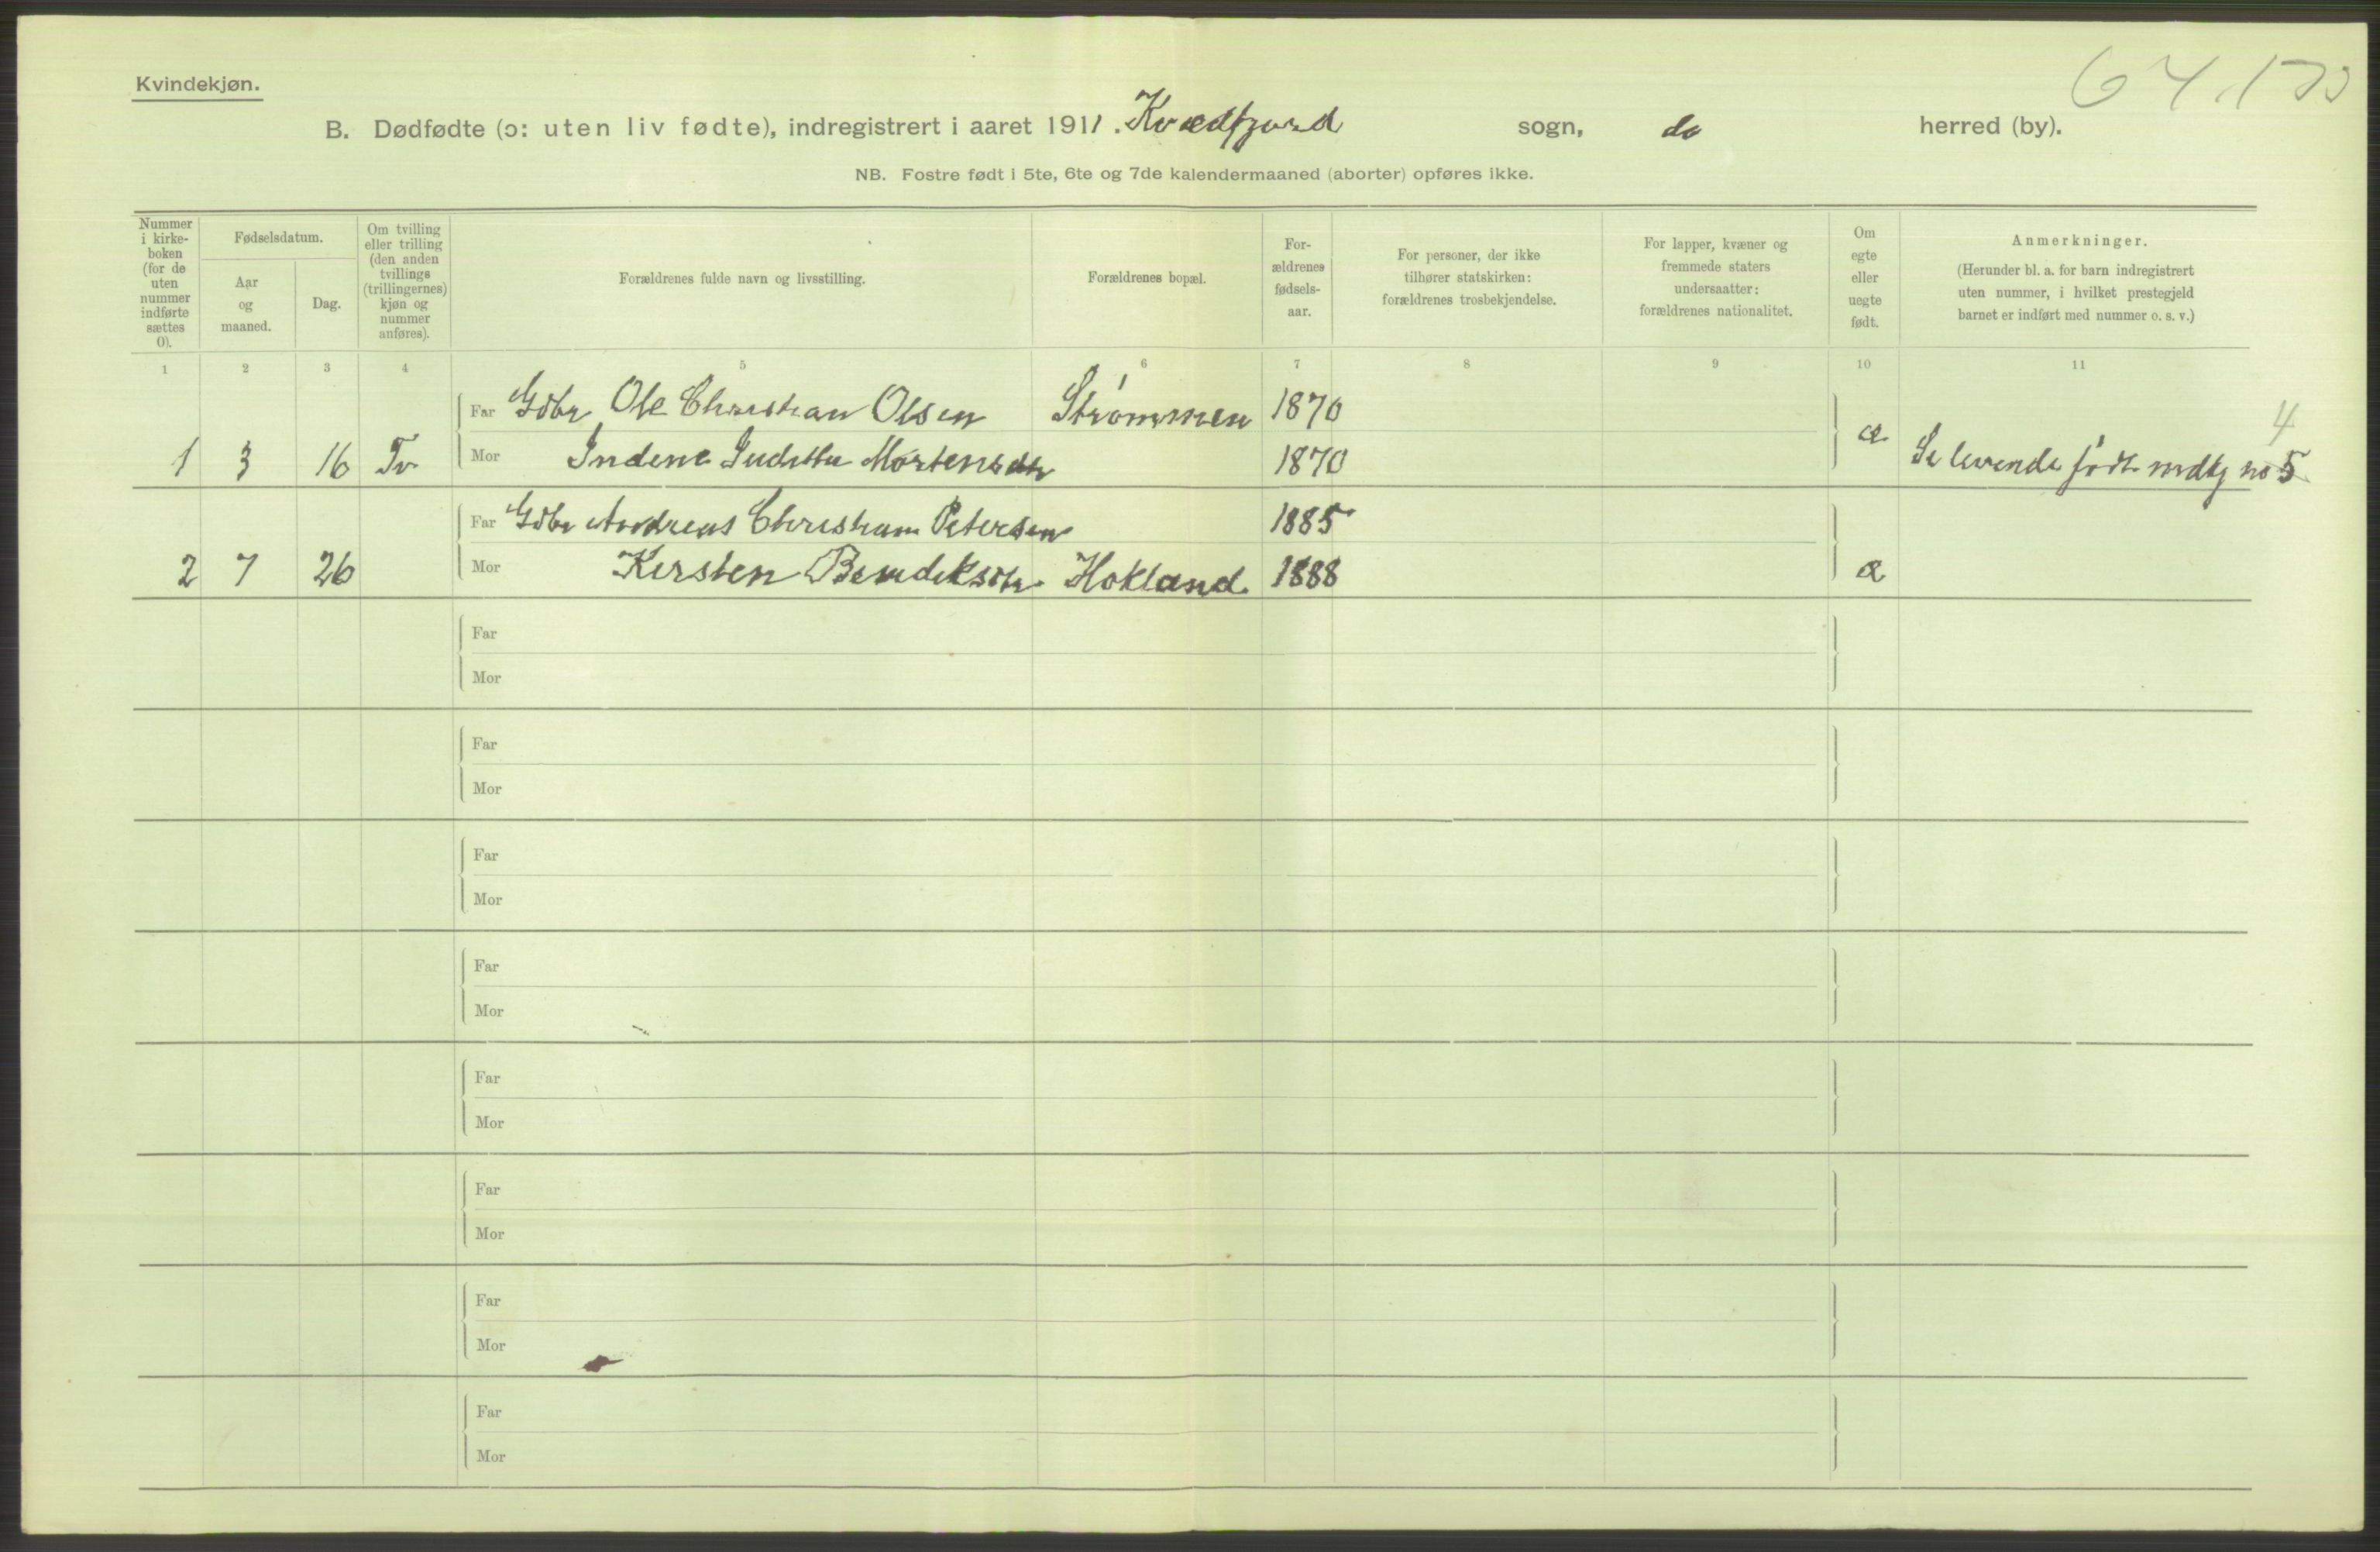 Kvindekjøn.
64.173
B. Dødfødte (ɔ: uten liv fødte), indregistrert i aaret 1911. Kvædfjord sogn, do herred (by).
NB. Fostre født i 5te, 6te og 7de kalendermaaned (aborter) opføres ikke.
Nummer i kirke-boken (for de uten nummer indførte sættes 0).
Fødselsdatum.
Aar og maaned.
Dag.
Om tvilling eller trilling (den anden tvillings (trillingernes) kjøn og nummer anføres).
Forældrenes fulde navn og livsstilling.
Forældrenes bopæl.
For-ældrenes fødsels-aar.
For personer, der ikke tilhører statskirken: forældrenes trosbekjendelse.
For lapper, kvæner og fremmede staters undersaatter: forældrenes nationalitet.
Om egte eller uegte født.
Anmerkninger.
(Herunder bl. a. for barn indregistrert uten nummer, i hvilket prestegjeld barnet er indført med nummer o. s. v.)
1 2 3 4 5 6 7 8 9 10 11
Far Gdbr Ole Christian Olsen Strømmen 1870
1 3 16 Tv. Mor Indene Judithe Mortensdtr 1870 æ Se levende født mdkj no 5 4
Far Gdbr Andreas Christian Petersen 1885
2 7 26 Mor Kirsten Bendiksdtr Hokland 1888 æ
Far
Mor
Far
Mor
Far
Mor
Far
Mor
Far
Mor
Far
Mor
Far
Mor
Far
Mor